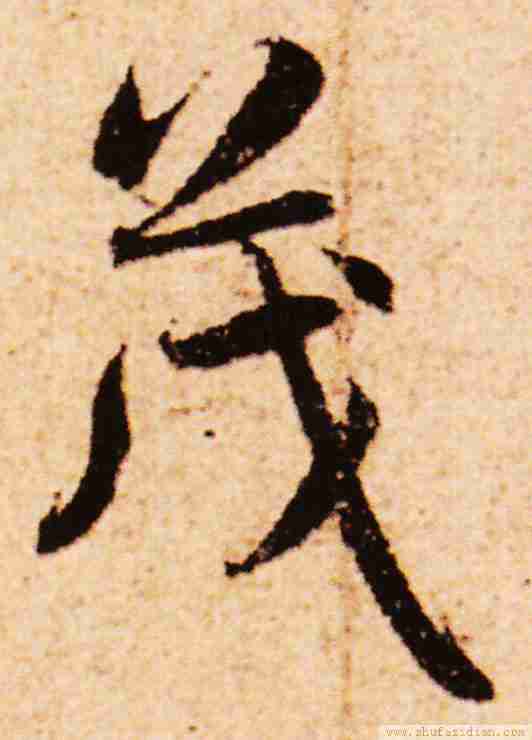 茂
www.shufazidian.com